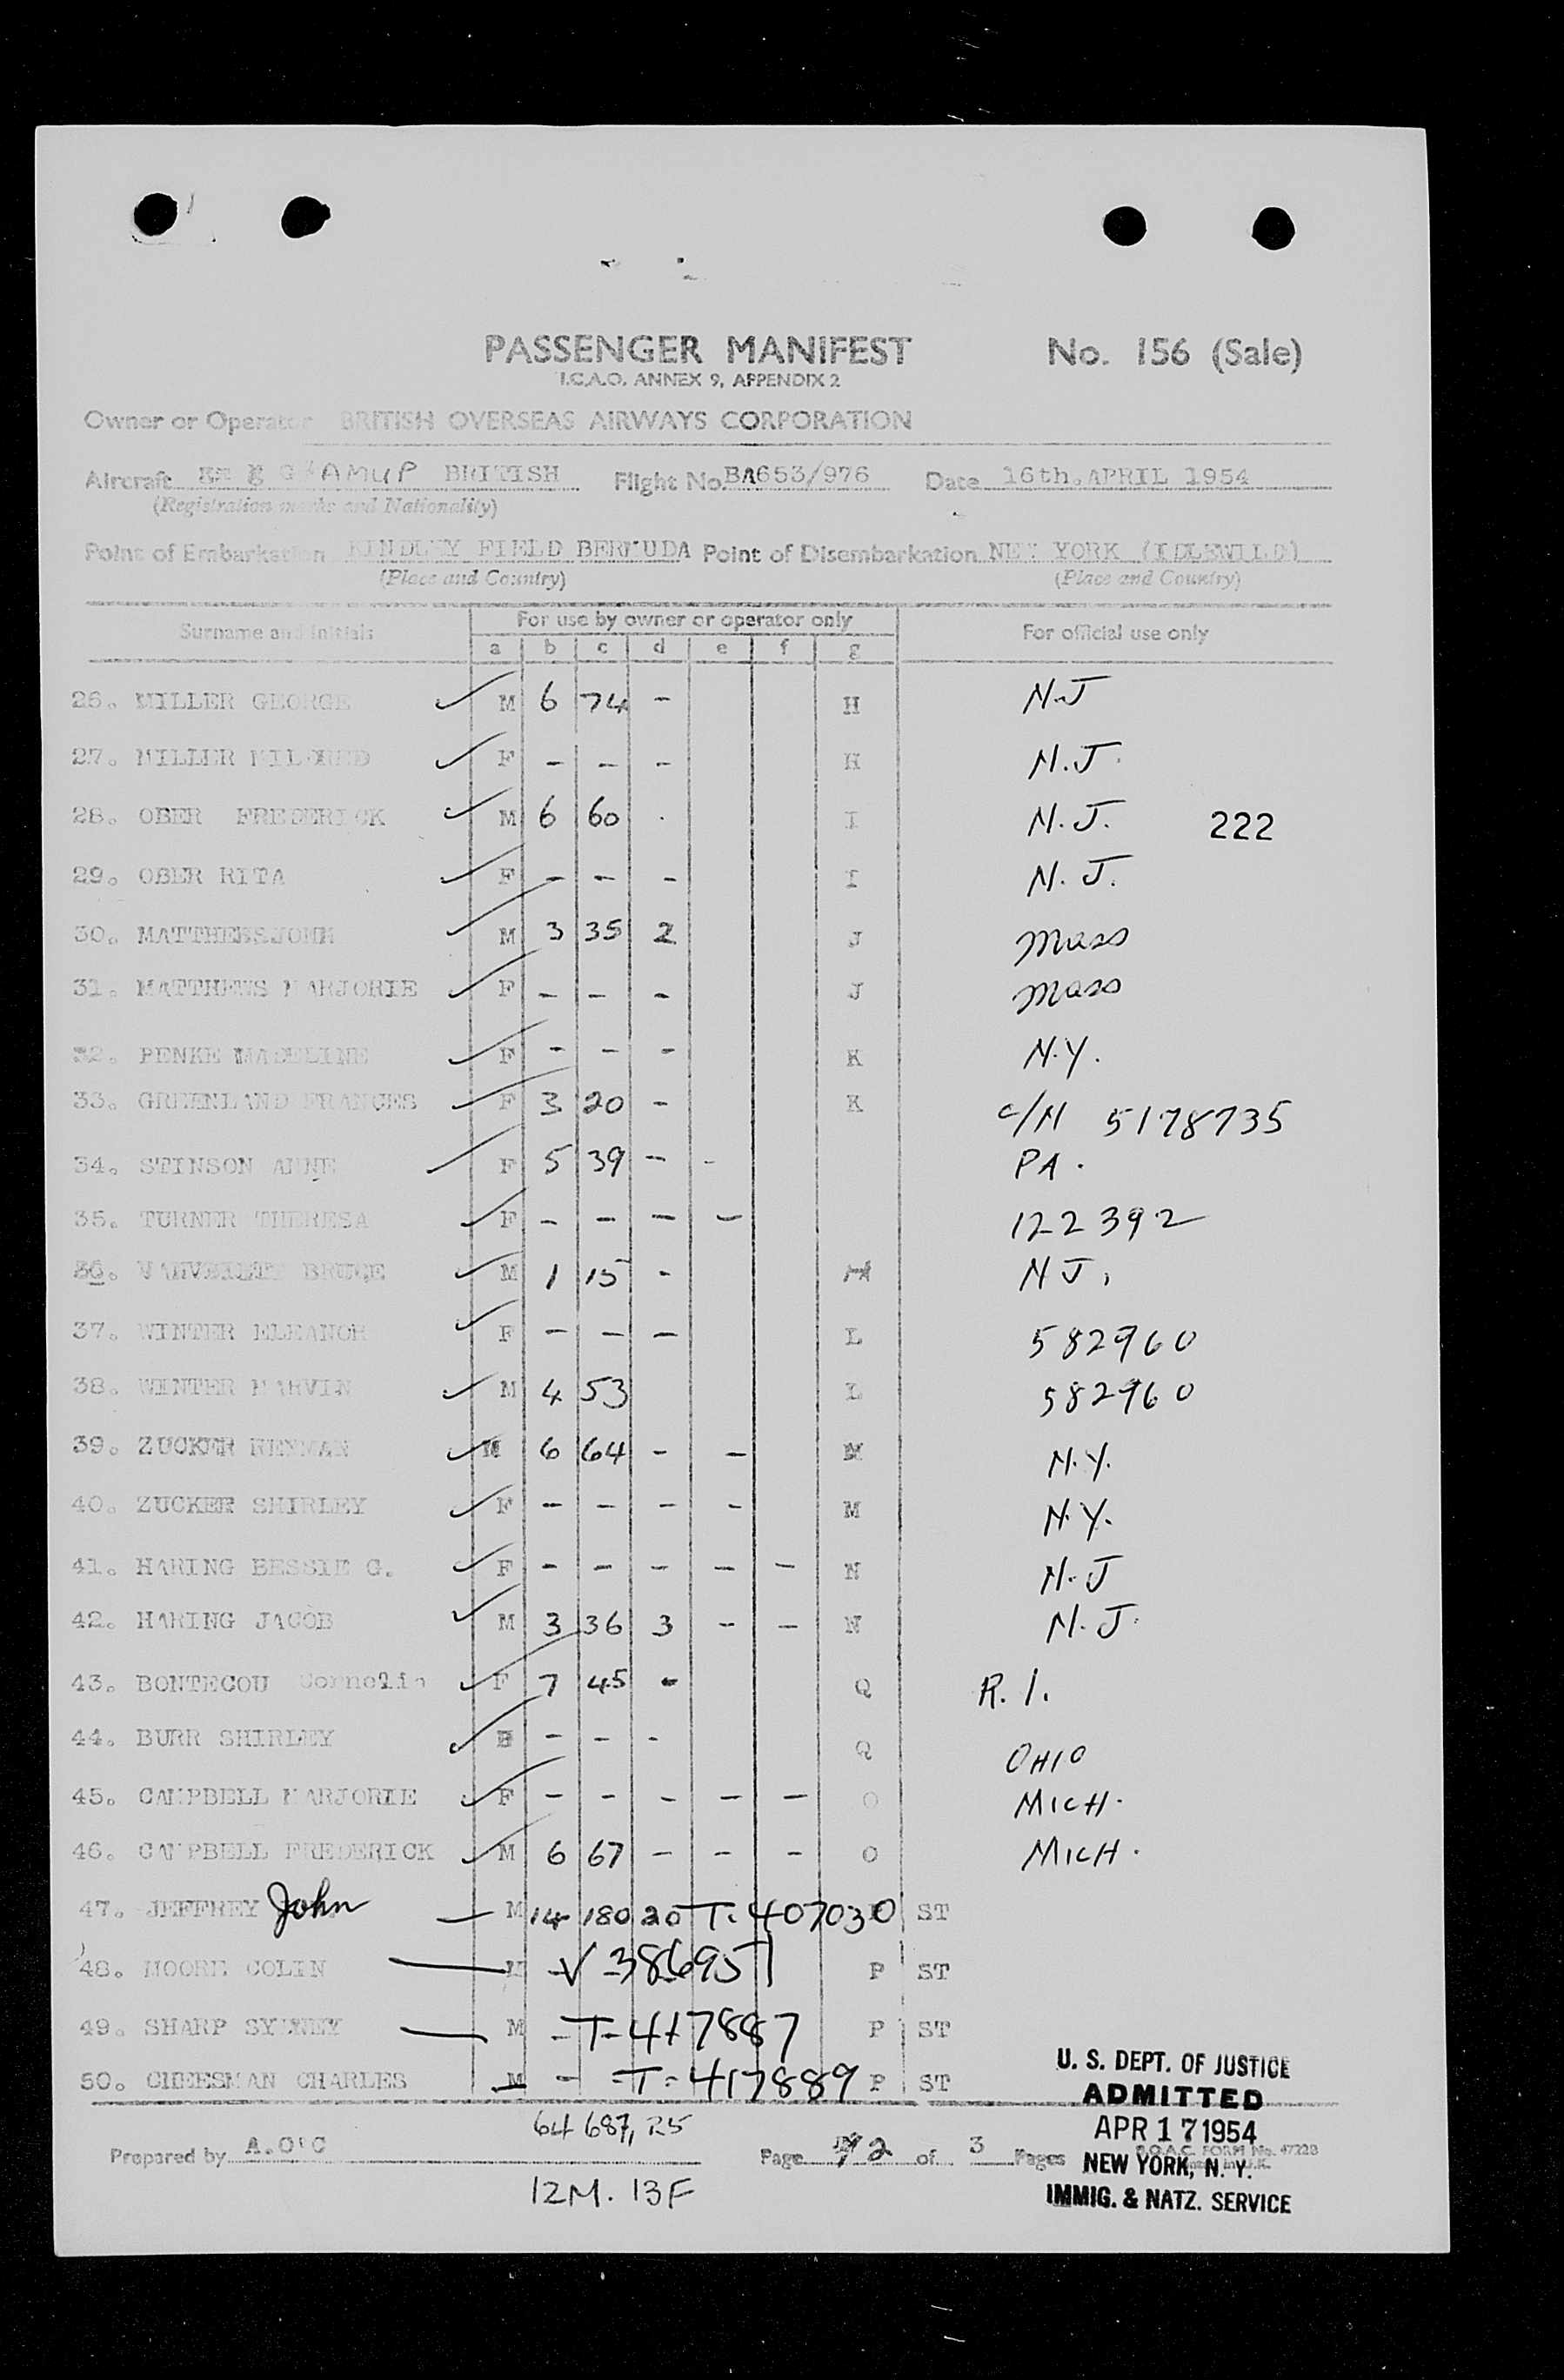 PASSENGER MANIFEST No. 156 (Sale)
I.C.A.O. ANNEX 9, APPENDIX 2
Owner or Operator BRITISH OVERSEAS AIRWAYS CORPORATION
Aircraft G'AMUP BRITISH Flight No. BA653/976 Date 16th. APRIL 1954
(Registration marks and Nationality)
Point of Embarkation KINDLEY FIELD BERMUDA Point of Disembarkation NEW YORK (IDLEWILD)
(Place and Country) (Place and Country)
Surname and Initials For use by owner or operator only For official use only
a b c d e f g
26. MILLER GEORGE M 6 74 - H N.J
27. MILLER MILDRED F - - - H N.J.
28. OBER FREDERICK M 6 60 . I N.J. 222
29. OBER RITA F - - - I N.J.
30. MATTHEWS JOHN M 3 35 2 J Mass
31. MATTHEWS MARJORIE F - - - J Mass
32. PENKE MADELINE F - - - K N.Y.
33. GREENLAND FRANCES F 3 20 - K c/N 5178735
34. STINSON ANNE F 5 39 - - PA.
35. TURNER THERESA F - - - - 122392
36. BRUCE M 1 15 - H NJ.
37. WINTER ELEANOR F - - - L 582960
38. WINTER MARVIN M 4 53 L 582960
39. ZUCKER HEYMAN M 6 64 - - M N.Y.
40. ZUCKER SHIRLEY F - - - - M N.Y.
41. HARING BESSIE G. F - - - - - N N.J
42. HARING JACOB M 3 36 3 - - N N.J.
43. BONTECOU Cornelia F 7 45 - Q R.I.
44. BURR SHIRLEY F - - - Q OHIO
45. CAMPBELL MARJORIE F - - - - - O MICH.
46. CAMPBELL FREDERICK M 6 67 - - - O MICH.
47. JEFFREY John M 14 180 20 T. 407030 ST
48. MOORE COLIN M V 386951 P ST
49. SHARP SYDNEY M - T-417887 P ST
50. CHEESMAN CHARLES M - T-417889 P ST
U. S. DEPT. OF JUSTICE
ADMITTED
64 687, 25
APR 17 1954
Prepared by A.O'C Page 2 of 3 Pages B.O.A.C. FORM No. 4722B
NEW YORK, N. Y.
12M. 13F
IMMIG. & NATZ. SERVICE